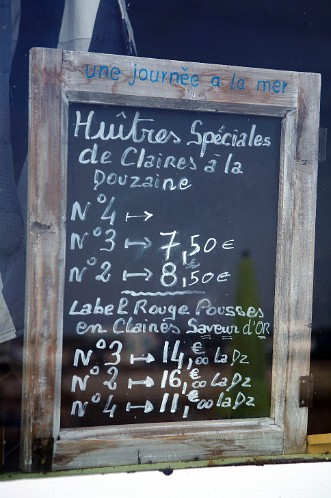 une journée a la mer
Huîtres Spéciales
de Claires à la
Douzaine
N°4 →
N°3 → 7,50 €
N°2 → 8,50 €
Label Rouge Pousses
en Claires Saveur d'OR
N°3 → 14,€00 La Dz
N°2 → 16,€00 La Dz
N°4 → 11,€00 La Dz